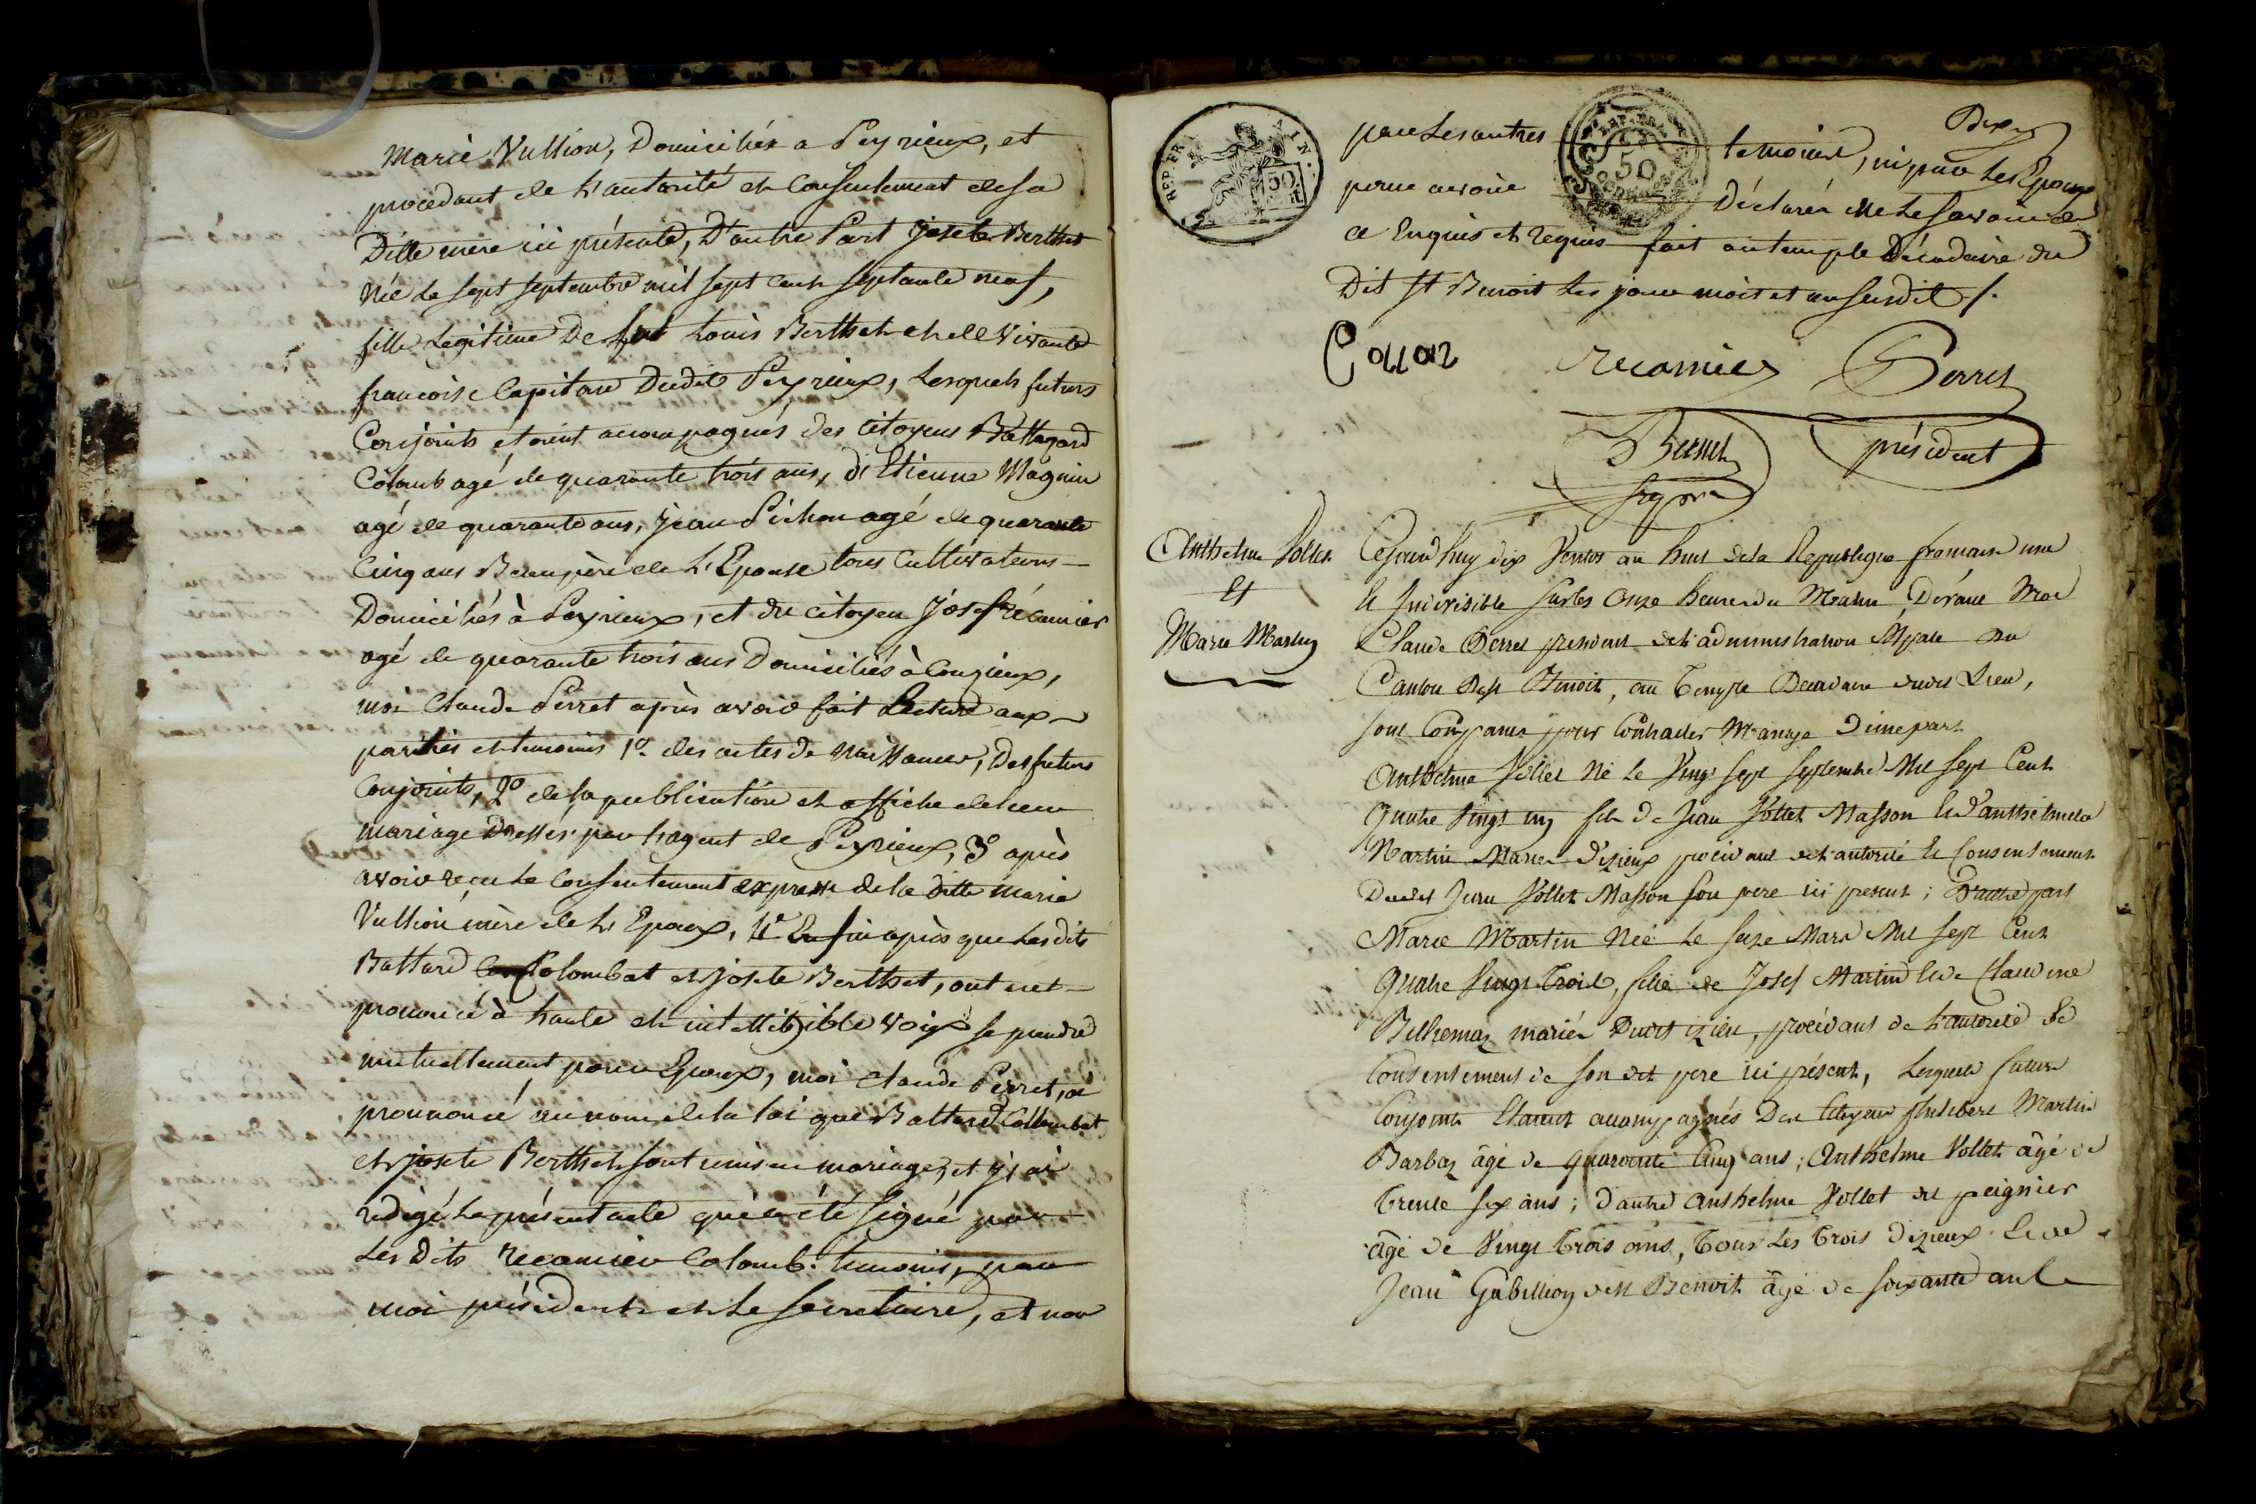 Marie Vullion, Domiciliée a Peyrieux, et
procedant de l'autorité et Consentement de sa
Ditte mere ici présente, D'autre Part josete Berthet
Née Le sept septembre mil sept cent septante neuf,
fille Legitime De feu Louis Berthet et de Vivante
francoise Capitan Dudit Peyrieux, Lesquels futurs
Conjoints étoient accompagnés des citoyens Battazard
Colomb agé de quarante trois ans, d'Etienne Magnin
agé de quarante ans, jean Pichon agé de quarante
Cinq ans Beaupère de L'Epouse tous Cultivateurs
Domiciliés à Peyrieux, et du citoyen Josef récamier
agé de quarante trois ans Domiciliés à Conzieux,
moi Claude Perret après avoir fait Lecture aux
parties et temoins 1° des actes de Naissance, Des futurs
Conjoints, 2° de la publication et affiche de leur
mariage Dressés par Lagent de Peyrieux, 3° après
avoir reçu Le Consentement expresse de la ditte marie
Vullion mère de L'Epoux, 4e Enfin après que Lesdits
Battard Colombat et josete Berthet, ont
prononcé à haute et intelligible voix se prendre
mutuellement pour Epoux, moi Claude Perret, ai
prononcé au nom de la loi que Battard Collombat
et josete Berthet sont unis en mariage, et j'ai
redigé Le présent acte qui a été signé par
Les Dits recamier Colomb. temoins, par
moi président et Le secretaire, et non
par Les autres temoins, ni par Les Epoux
pour avoir Déclarér ne Le savoir
ce Enquis et requis fait au temple Décadaire du
Dit St Benoit Les jour mois et an susdit /.
recamier Perret
président
Anthelme Vollet
Et
Marie Martin
Cejourd'huy dix Ventos an huit de la Republique francaise une
Et Indivisible sur les Onze heures du Matin Devant Moi
Claude Perret president de l'administration Mpale du
Canton De St Benoit, au Temple Decadaire dudit Lieu,
sont Comparus pour Contracter Mariage D'une part
Anthelme Vollet Né Le Vingt sept septembre Mil sept Cent
Quatre Vingt un fils de Jean Vollet Masson Et d'anthelmela
Martin Mariés d'izieux procédant de l'autorité Et Consentement
Dudit Jean Vollet Masson son pere ici present ; D'autre part
Marie Martin Née Le seize Mars Mil sept Cent
Quatre Vingt trois, fille de Josef Martin Et de Claudine
Belhemaz mariés Dudit izieu, procédant de L'autorité Et
Consentement de son dit pere ici présent, Lesquels futurs
Conjoints Etaient accompagnés Des Citoyens Philibert Martin
Barbaz âgé de quarante Cinq ans ; Anthelme Vollet âgé de
trente six ans ; d'autre anthelme Vollet dit peignier
âgé de Vingt trois ans, Tous Les trois d'izieux Et de
Jean Gabillion de St Benoit âgé de soixante ans